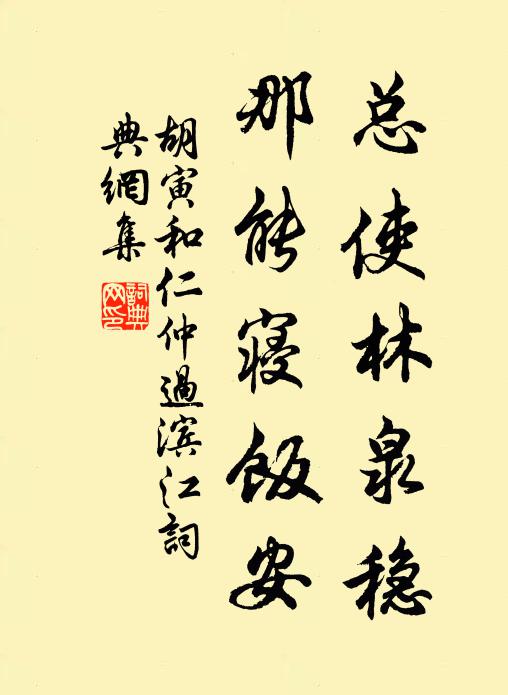 总使林泉稳
那能寝饭安
胡寅和仁仲過滨江詞
典網集
詞典网印